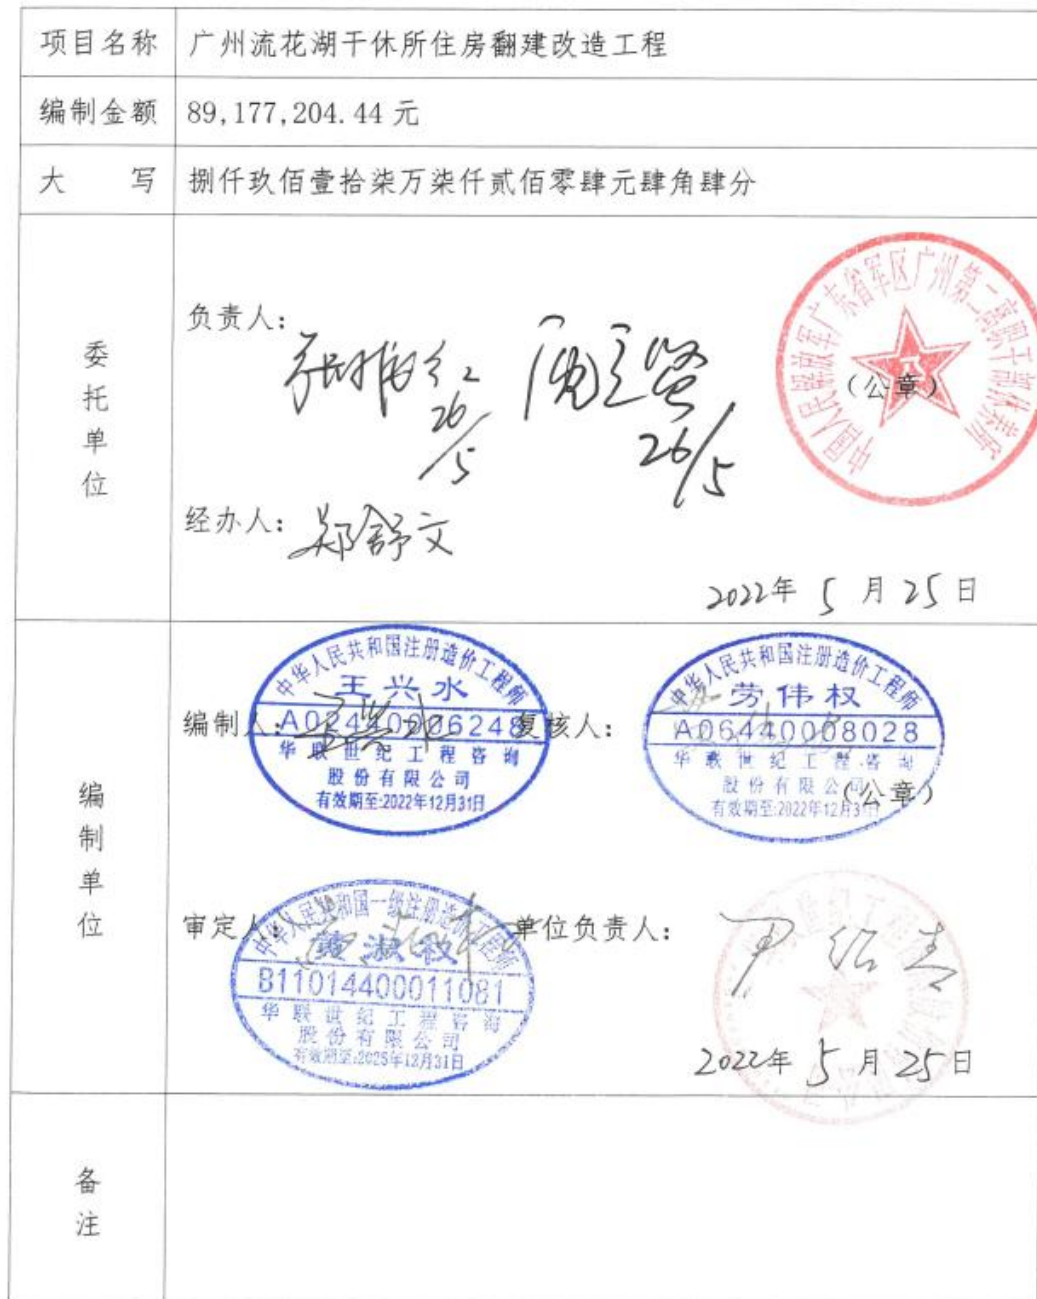 项目名称 广州流花湖干休所住房翻建改造工程
编制金额 89,177,204.44 元
大 写 捌仟玖佰壹拾柒万柒仟贰佰零肆元肆角肆分
委托单位
负责人:
26/5
26/5
中国人民解放军广东省军区广州第二高职干部休养所
(公章)
经办人: 郑舒文
2022年 5 月 25 日
编制单位
编制人:
中华人民共和国注册造价工程师
王兴水
A024440006248
华联世纪工程咨询
股份有限公司
有效期至:2022年12月31日
复核人:
中华人民共和国注册造价工程师
劳伟权
A06440008028
华联世纪工程咨询
股份有限公司
有效期至:2022年12月31日
(公章)
审定人:
中华人民共和国一级注册造价工程师
B11014400011081
华联世纪工程咨询
股份有限公司
有效期至:2025年12月31日
单位负责人:
2022年 5 月 25 日
备注